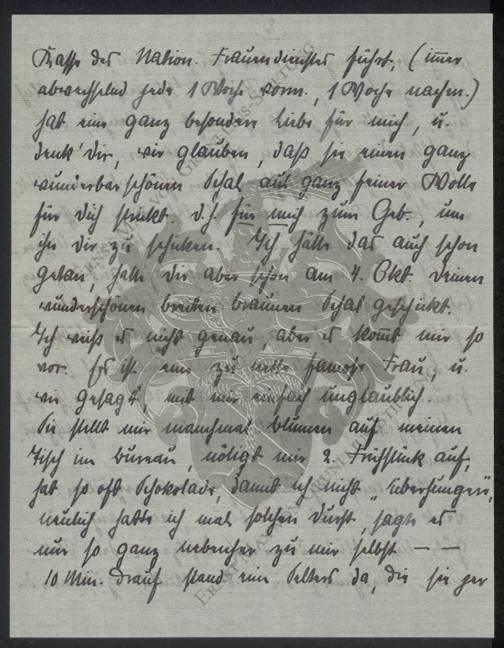 Kasse des Nation. Frauendienstes führt, (immer
abwechselnd jede 1 Woche vorm., 1 Woche nachm.)
hat eine ganz besondere Liebe für mich, u.
denk' Dir, wir glauben, daß sie einen ganz
wunderbar schönen Schal aus ganz feiner Wolle
für Dich strickt. d. h. für mich zum Geb., um
ihn Dir zu schicken. Ich hätte das auch schon
getan, hatte Dir aber schon am 4. Okt. Deinen
wunderschönen breiten braunen Schal geschickt.
Ich weiß es nicht genau, aber es kom̅t mir so
vor. Es ist eine zu nette famose Frau, u.
wie gesagt, mit mir einfach unglaublich.
Sie stellt mir manchmal Blumen auf meinen
Tisch im Bureau, nötigt mir 2. Frühstück auf,
hat so oft Schokolade, damit ich nicht „überhungere",
neulich hatte ich mal solchen Durst, sagte es
nur so ganz nebenher zu mir selbst — —
10 Min. drauf stand eine Selters da, die sie per
ERNST FRANZ VON GERNHARD-STIFTUNG